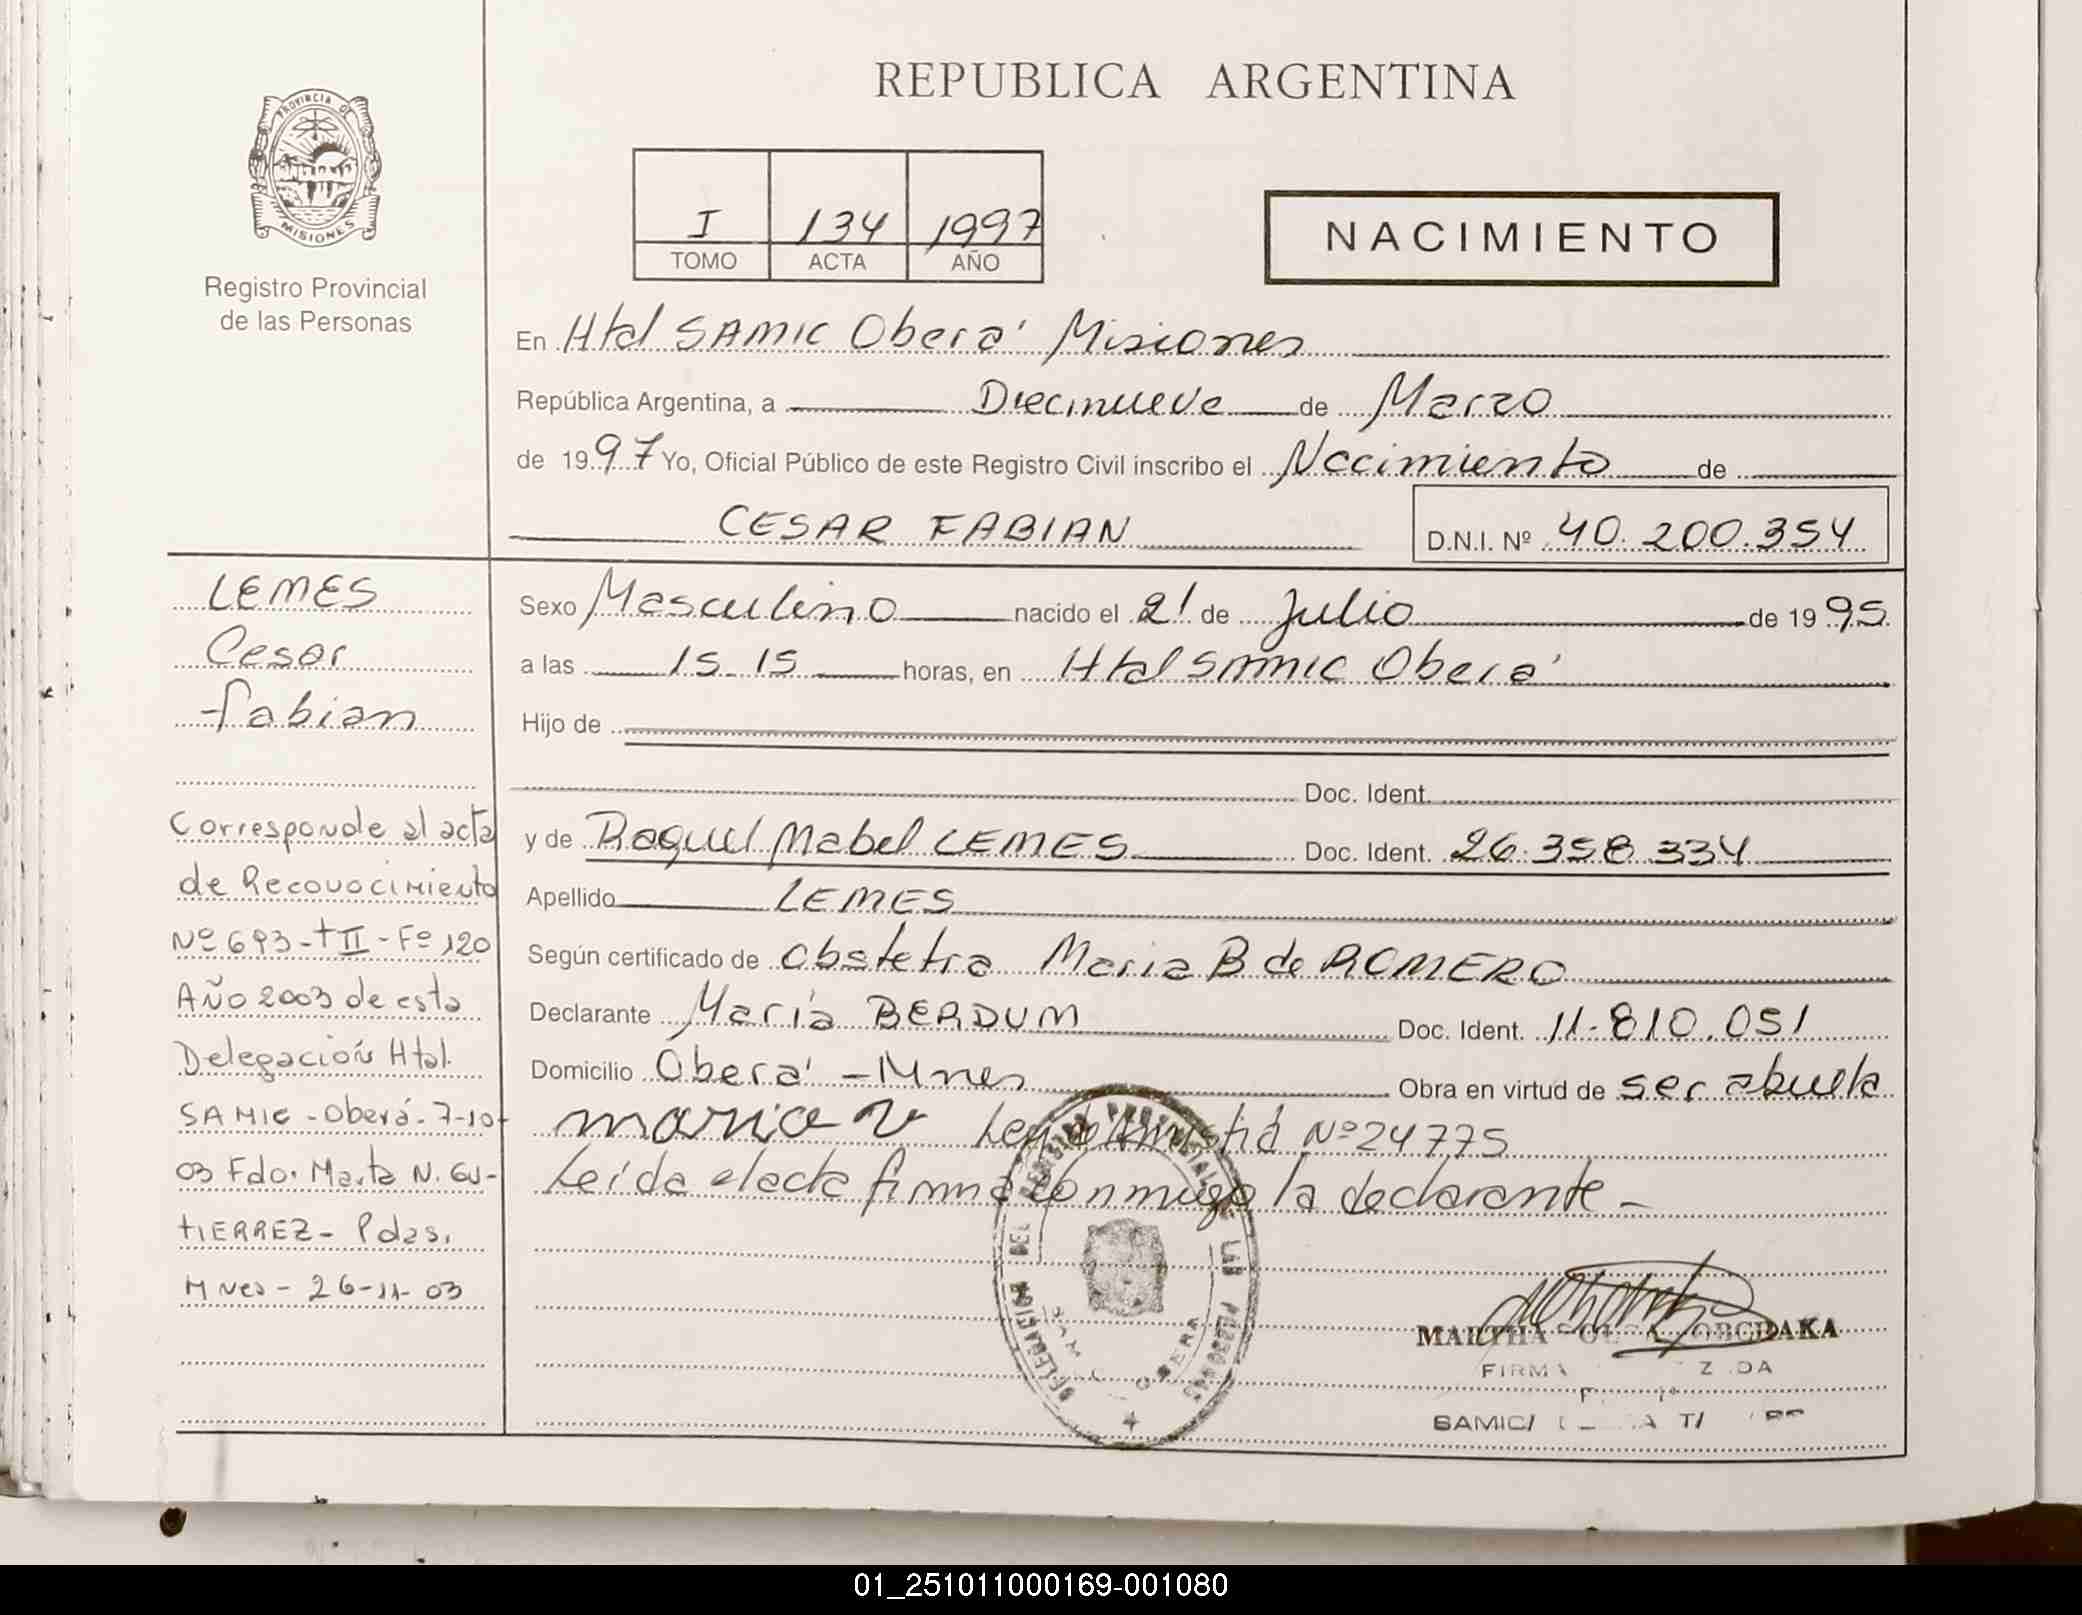 REPUBLICA ARGENTINA
PROVINCIA DE
MISIONES
Registro Provincial
de las Personas
I 134 1997
TOMO ACTA AÑO
NACIMIENTO
En Htal SAMIC Oberá Misiones
República Argentina, a Diecinueve de Marzo
de 1997 Yo, Oficial Público de este Registro Civil inscribo el Nacimiento de
CESAR FABIAN D.N.I. Nº 40.200.354
LEMES
Cesar
Fabian
Corresponde al acta
de Reconocimiento
Nº 693-t II-Fº 120
Año 2003 de esta
Delegación Htal.
SAMIC-Oberá-7-10-
03 Fdo. Marta N. Gu-
tIERREZ- Pdas.
Mnes-26-11-03
Sexo Masculino nacido el 21 de Julio de 1995
a las 15.15 horas, en Htal SAMIC Oberá
Hijo de
Doc. Ident.
y de Raquel Mabel LEMES Doc. Ident. 26.358.334
Apellido LEMES
Según certificado de Obstetra Maria B de ROMERO
Declarante María BERDUM Doc. Ident. 11.810.051
Domicilio Oberá - Mnes Obra en virtud de ser abuela
maria v Ley de Amnistía Nº 24775
Leída el acta firma conmigo la declarante -
DELEGACION DEL REGISTRO PROVINCIAL DE LAS PERSONAS
SAMIC OBERA
MARTHA
FIRMA
SAMIC
01_251011000169-001080